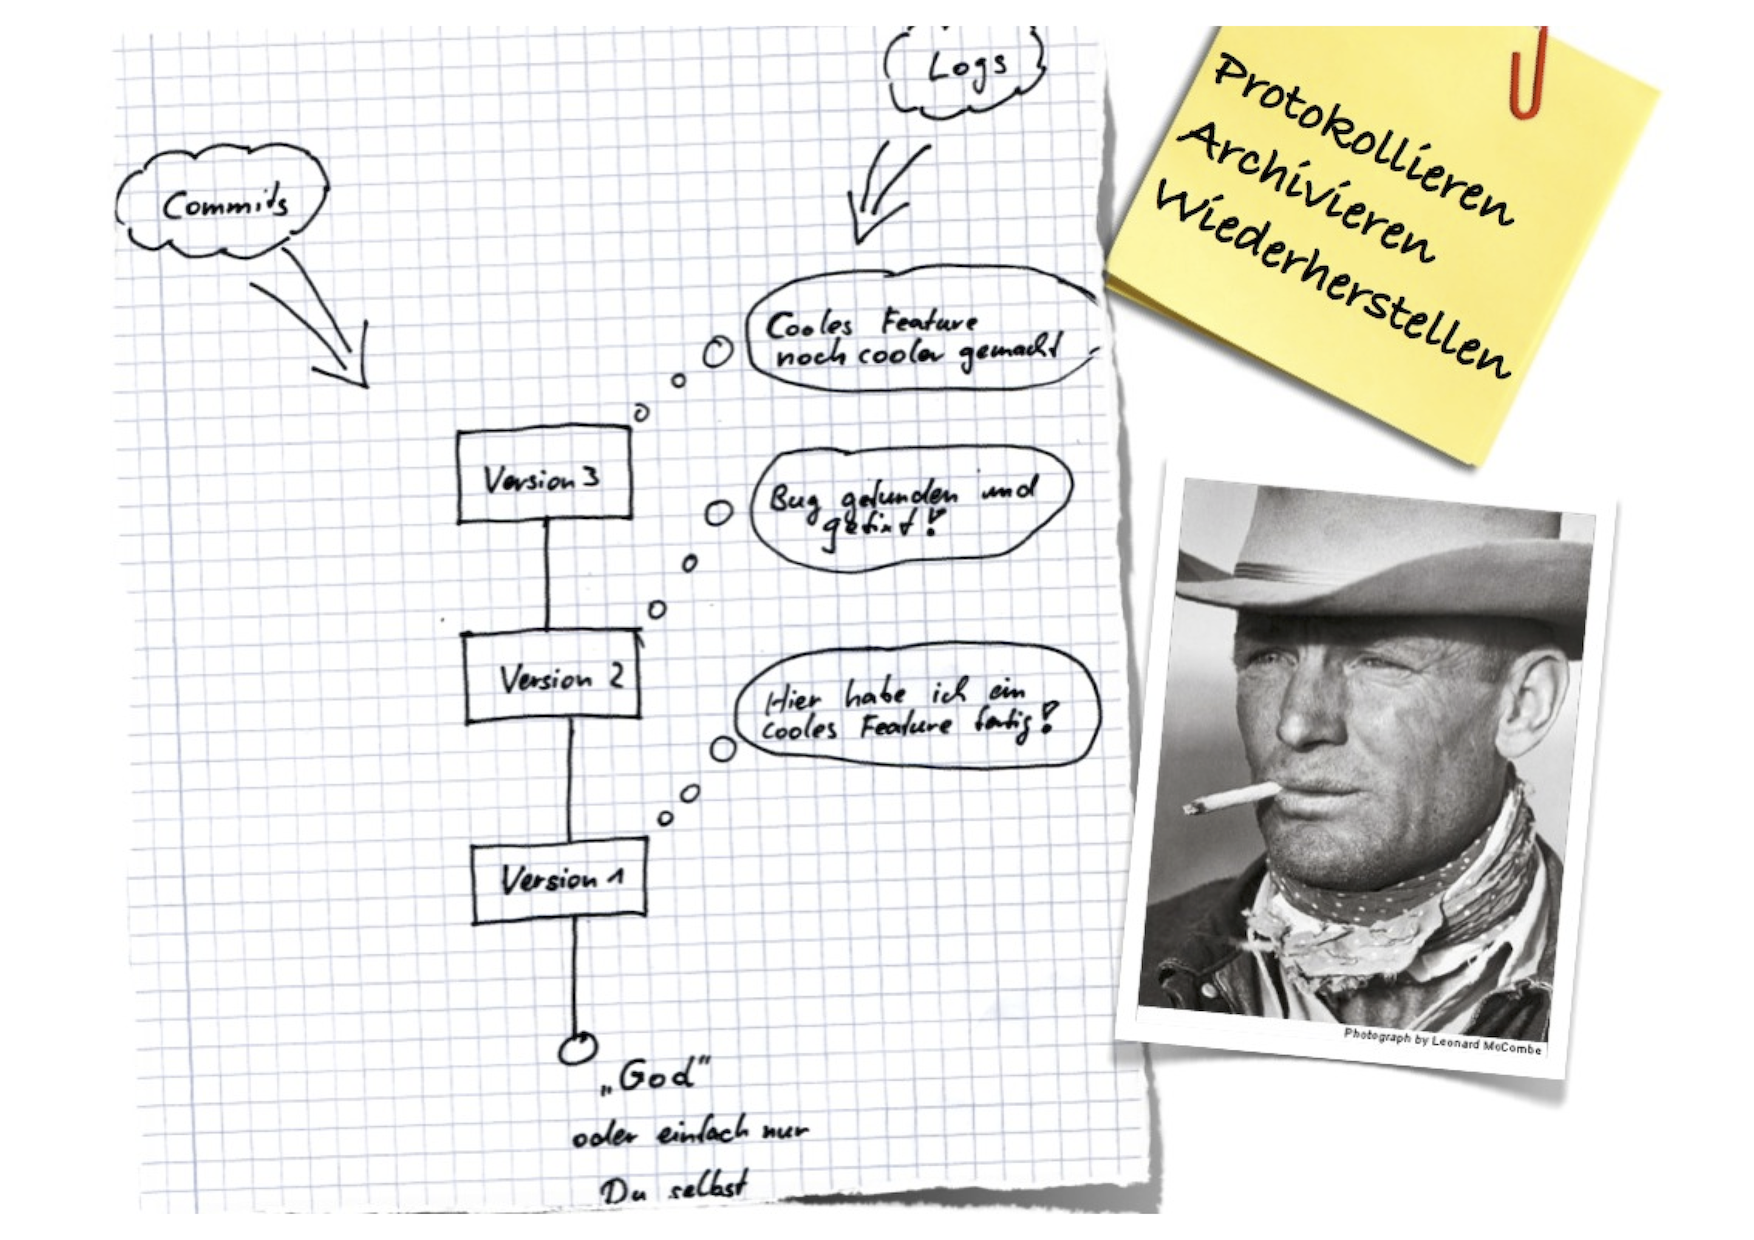 Logs
Commits
Cooles Feature
noch cooler gemacht
Version 3
Bug gefunden und
gefixt!
Version 2
Hier habe ich ein
cooles Feature fertig!
Version 1
„God“
oder einfach nur
Du selbst
Protokollieren
Archivieren
Wiederherstellen
Photograph by Leonard McCombe